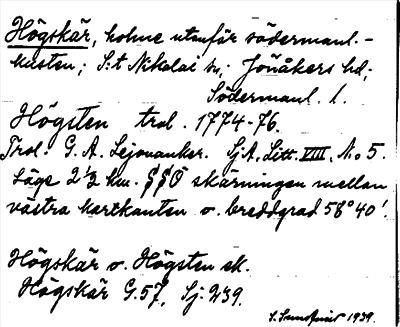 Högskär, holme utanför södermanl.-
kusten; S:t Nikolai sn; Jönåkers hd;
Södermanl. l.
Högsten trol. 1774-76.
Trol. G. A. Lejonanker. SjA. Litt. VIII, No 5.
Läge 2½ km. SSO skärningen mellan
västra kartkanten o. breddgrad 58°40'.
Högskär o. Högsten sk.
Högskär G.57, Sj. 239.
1939.